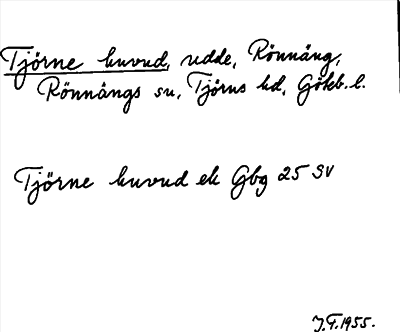 Tjörne huvud, udde, Rönnäng,
Rönnängs sn, Tjörns hd, Göteb. l.
Tjörne huvud ek Gbg 25 SV
J.F. 1955.